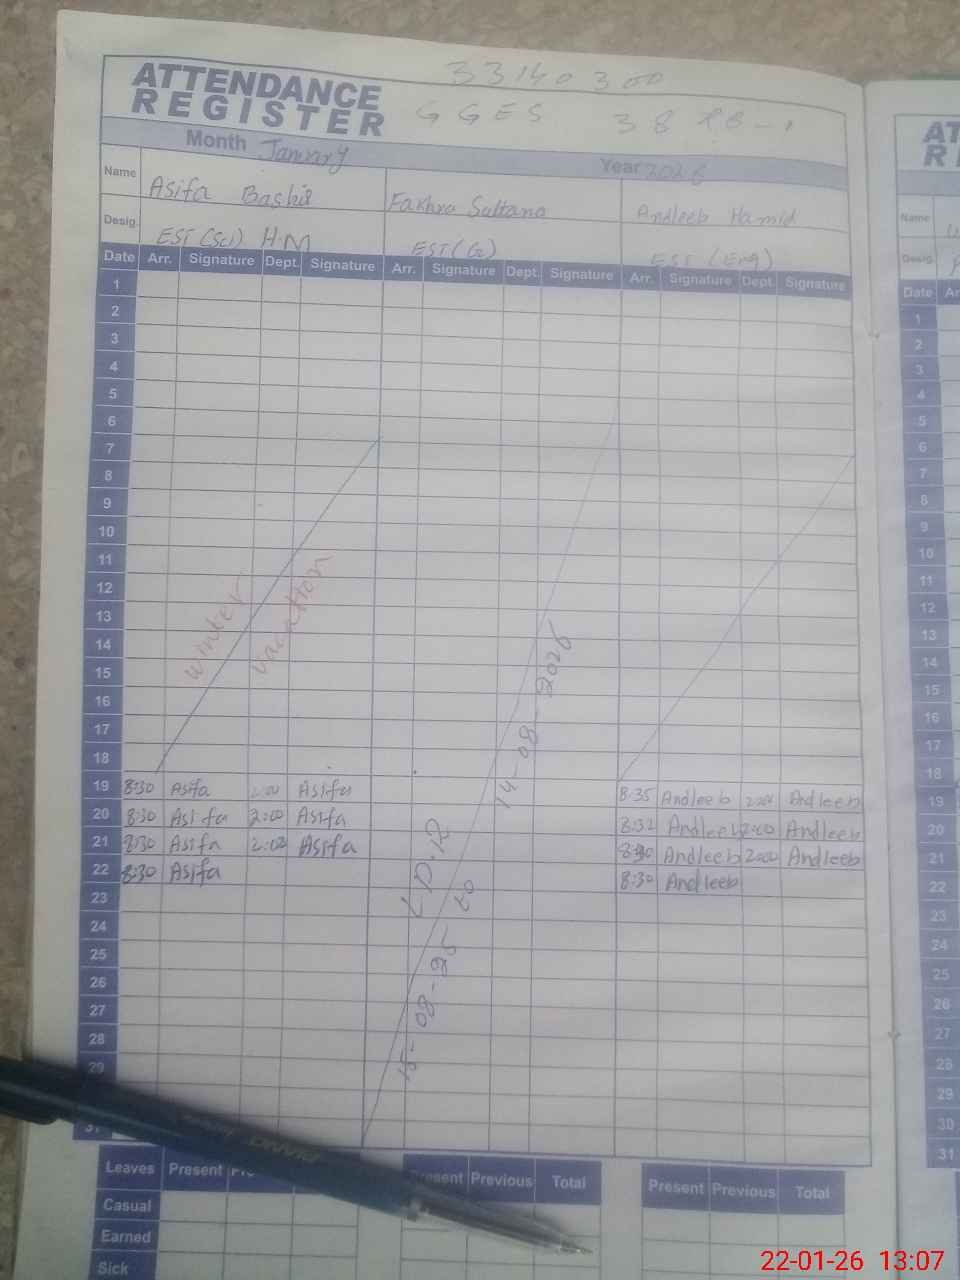 33140300
ATTENDANCE
REGISTER
GGES 38
Month January Year 2026
Name Asifa Bashir Fakhra Sultana Andleeb Hamid
Desig. EST (Sci) H.M EST (G) EST (Eng)
Date Arr. Signature Dept. Signature Arr. Signature Dept. Signature Arr. Signature Dept. Signature
1
2
3
4
5
6
7
8
9
10
11
12
13
14
15
16
17
18
winter
vacation
19 8:30 Asifa 2:00 Asifa 8:35 Andleeb 2:00 Andleeb
20 8:30 Asifa 2:00 Asifa 8:32 Andleeb 2:00 Andleeb
21 8:30 Asifa 2:00 Asifa Andleeb 2:00 Andleeb
22 8:30 Asifa 8:30 Andleeb
23
24
25
26
27
28
29
31
15-08-25
to
14-08-2026
Leaves Present
Present Previous Total
Present Previous Total
Casual
Earned
Sick
AT
R
Name
Desig.
Date Ar
1
2
3
4
5
6
7
8
9
10
11
12
13
14
15
16
17
18
19
20
21
22
23
24
25
26
27
28
29
30
31
22-01-26 13:07